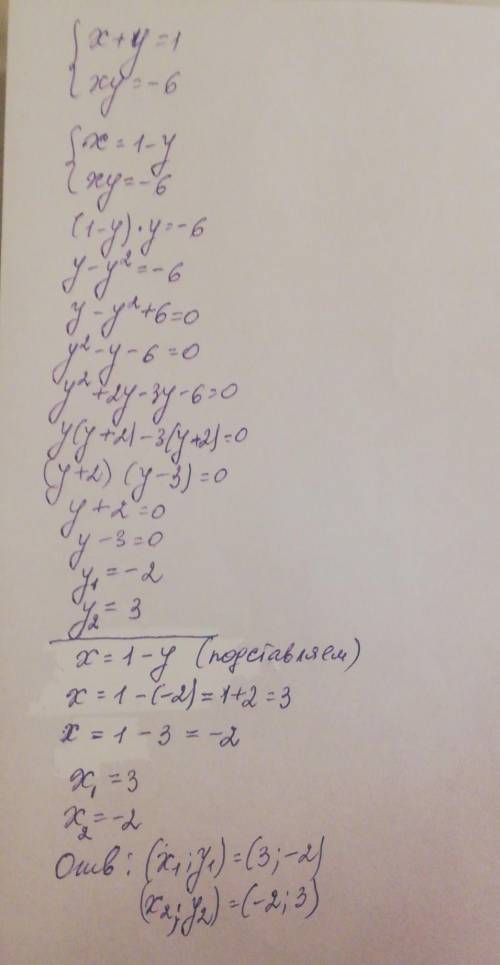 { x + y = 1
{ xy = -6
{ x = 1 - y
{ xy = -6
(1-y)·y = -6
y - y² = -6
y - y² + 6 = 0
y² - y - 6 = 0
y² + 2y - 3y - 6 = 0
y(y+2) - 3(y+2) = 0
(y+2) (y-3) = 0
y + 2 = 0
y - 3 = 0
y₁ = -2
y₂ = 3
x = 1 - y (подставляем)
x = 1 - (-2) = 1+2 = 3
x = 1 - 3 = -2
x₁ = 3
x₂ = -2
Отв: (x₁; y₁) = (3; -2)
(x₂; y₂) = (-2; 3)